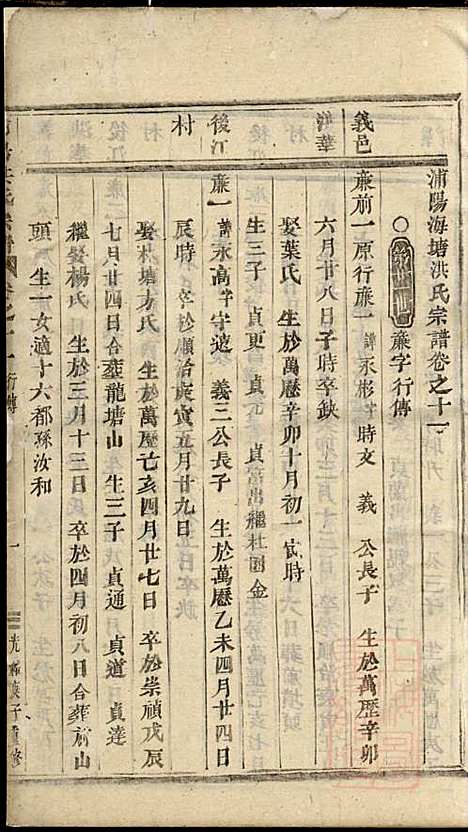 浦陽海塘洪氏宗譜卷之十一
廉字行傳
義邑
洪華
後江
村
廉前一原行廉一 諱永彬字時文 義 公長子 生於萬歷辛卯
六月廿八日子時卒缺
娶葉氏 生於萬歷辛卯十月初一寅時
生三子 貞更 貞元 貞富出繼杜園金
廉一 諱永高字守遠 義三公長子 生於萬歷乙未四月廿四日
辰時 卒於順治庚寅五月廿九日
娶杜塘方氏 生於萬歷己亥四月廿七日 卒於崇禎戊辰
七月廿四日合葬龍塘山 生三子 貞通 貞道 貞達
繼娶楊氏 生於三月十三日 卒於四月初八日合葬前山
頭 生一女適十六都孫汝和
行傳
一
光緒 子重修